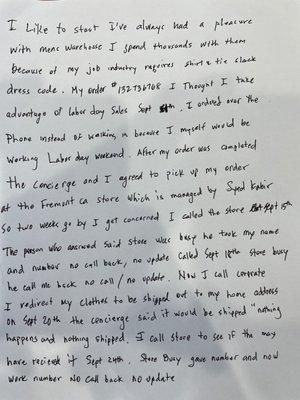 I Like to start I've always had a pleasure
with mens warehouse I spend thousands with them
Because of my job industry requires shirt & tie slack
dress code. My order #132736708 I Thought I take
advantage of labor day Sales Sept. I ordered over the
Phone instead of walking in because I myself would be
Working Labor day weekend. After my order was completed
the concierge and I agreed to pick up my order
at the Fremont ca store which is managed by Syed Kabir
So two weeks go by I get concerned I called the store Sept 15th
The person who answered said store was busy he took my name
and number no call back, no update called Sept 18th store busy
he call me back no call / no update. Now I call corporate
I redirect my clothes to be shipped out to my home address
on Sept 20th the concierge said it would be shipped "nothing
happens and nothing shipped. I call store to see if the may
have recieved it Sept 24th. Store Busy gave number and now
work number No call back No update